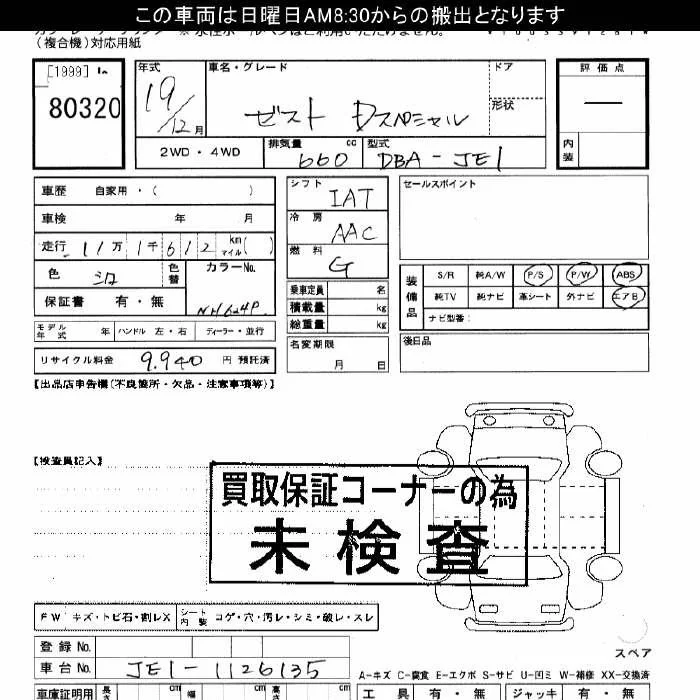 この車両は日曜日AM8:30からの搬出となります
（複合機）対応用紙
[1999]
80320
年式 19/12月
車名・グレード ゼスト Dスペシャル
ドア
形状
評価点 —
内装
2WD・4WD
排気量 660 cc
型式 DBA-JE1
車歴 自家用・( )
車検 年 月
走行 11万1千612 km マイル( )
色 シロ 色替 カラーNo. NH624P
保証書 有・無
モデル年式 年 ハンドル 左・右 ディーラー・並行
リサイクル料金 9.940 円 預託済
シフト IAT
冷房 AAC
燃料 G
乗車定員 名
積載量 kg
総重量 kg
名変期限 月 日
セールスポイント
装備品
S/R 純A/W P/S P/W ABS
純TV 純ナビ 革シート 外ナビ エアB
ナビ型番：
後日品
【出品店申告欄（不良箇所・欠品・注意事項等）】
【検査員記入】
買取保証コーナーの為
未検査
FW キズ・トビ石・割レX
シート内装 コゲ・穴・汚レ・シミ・破レ・スレ
登録No.
車台No. JE1-1126135
スペア
A-キズ C-腐食 E-エクボ S-サビ U-凹ミ W-補修 XX-交換済
車庫証明用 長さ cm 幅 cm 高さ cm
工具 有・無 ジャッキ 有・無